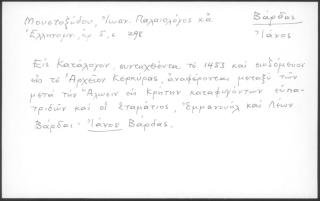 Μουστοξύδου, Ἰωαν. Παλαιολόγος κἀ
Ἑλληνομν., ἀρ 5, σ 298
Βάρδας
Ἰάνος
Εἰς Κατάλογον, συνταχθέντα τῷ 1453 και εὑρισκόμενον
εἰς τὸ Ἀρχεῖον Κερκύρας, ἀναφέρονται μεταξὺ τῶν
μετὰ τὴν Ἅλωσιν εἰς Κρήτην καταφυγόντων εὐπα-
τριδῶν καὶ οἱ Σταμάτιος, Ἐμμανουήλ καὶ Λέων
Βάρδαι - Ἰάνος Βάρδας.